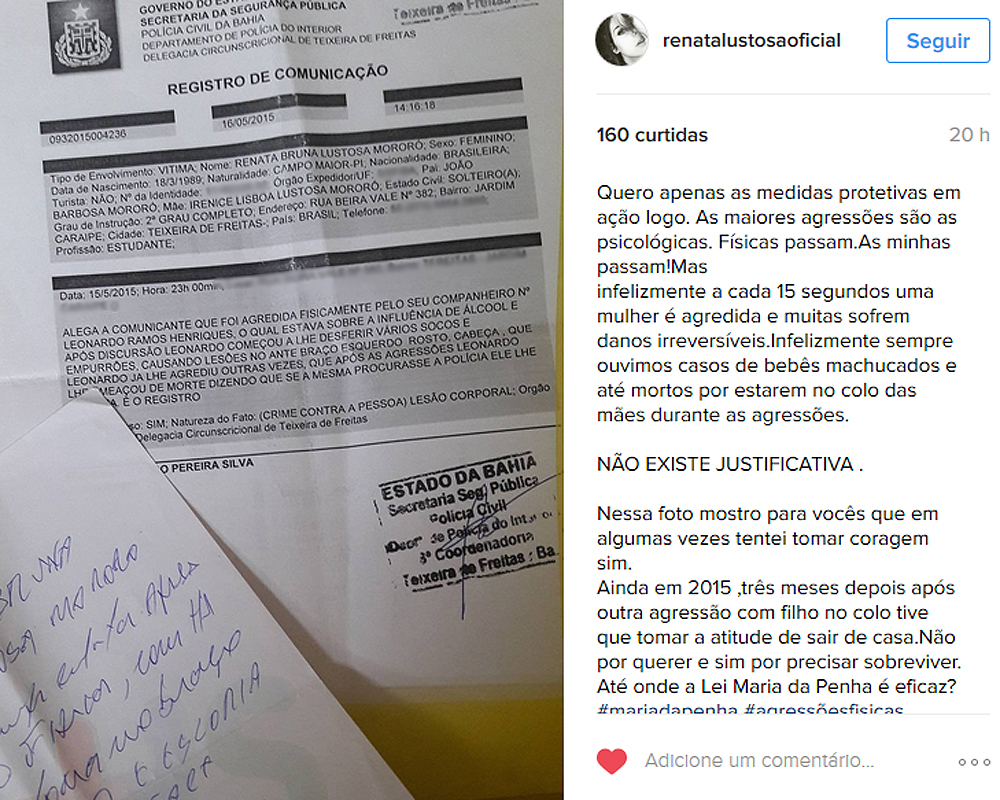 GOVERNO DO
SECRETARIA DA SEGURANÇA PÚBLICA
POLÍCIA CIVIL DA BAHIA
DEPARTAMENTO DE POLÍCIA DO INTERIOR
DELEGACIA CIRCUNSCRICIONAL DE TEIXEIRA DE FREITAS
Teixeira de Freitas
REGISTRO DE COMUNICAÇÃO
0932015004236
16/05/2015
14:16:18
Tipo de Envolvimento: VITIMA; Nome: RENATA BRUNA LUSTOSA MORORÓ; Sexo: FEMININO;
Data de Nascimento: 18/3/1989, Naturalidade: CAMPO MAIOR-PI, Nacionalidade: BRASILEIRA;
Turista: NÃO; Nº da Identidade: Órgão Expedidor/UF: Pai: JOÃO
BARBOSA MORORÓ; Mãe: IRENICE LISBOA LUSTOSA MORORÓ; Estado Civil: SOLTEIRO(A);
Grau de Instrução: 2º GRAU COMPLETO; Endereço: RUA BEIRA VALE Nº 382; Bairro: JARDIM
CARAIPE; Cidade: TEIXEIRA DE FREITAS-; País: BRASIL; Telefone:
Profissão: ESTUDANTE;
Data: 15/5/2015; Hora: 23h 00min,
ALEGA A COMUNICANTE QUE FOI AGREDIDA FISICAMENTE PELO SEU COMPANHEIRO Nº
LEONARDO RAMOS HENRIQUES, O QUAL ESTAVA SOBRE A INFLUÊNCIA DE ÁLCOOL E
APÓS DISCURSÃO LEONARDO COMEÇOU A LHE DESFERIR VÁRIOS SOCOS E
EMPURRÕES, CAUSANDO LESÕES NO ANTE BRAÇO ESQUERDO ROSTO, CABEÇA , QUE
LEONARDO JA LHE AGREDIU OUTRAS VEZES, QUE APÓS AS AGRESSÕES LEONARDO
LHE AMEAÇOU DE MORTE DIZENDO QUE SE A MESMA PROCURASSE A POLÍCIA ELE LHE
É O REGISTRO
SIM; Natureza do Fato: (CRIME CONTRA A PESSOA) LESÃO CORPORAL; Orgão
Delegacia Circunscricional de Teixeira de Freitas
PEREIRA SILVA
ESTADO DA BAHIA
Secretaria Seg. Pública
Polícia Civil
Dept. de Polícia do Int.
3ª Coordenadoria
Teixeira de Freitas - Ba.
renatalustosaoficial
Seguir
160 curtidas
20 h
Quero apenas as medidas protetivas em
ação logo. As maiores agressões são as
psicológicas. Físicas passam.As minhas
passam!Mas
infelizmente a cada 15 segundos uma
mulher é agredida e muitas sofrem
danos irreversíveis.Infelizmente sempre
ouvimos casos de bebês machucados e
até mortos por estarem no colo das
mães durante as agressões.
NÃO EXISTE JUSTIFICATIVA .
Nessa foto mostro para vocês que em
algumas vezes tentei tomar coragem
sim.
Ainda em 2015 ,três meses depois após
outra agressão com filho no colo tive
que tomar a atitude de sair de casa.Não
por querer e sim por precisar sobreviver.
Até onde a Lei Maria da Penha é eficaz?
#mariadapenha #agressõesfisicas
Adicione um comentário...